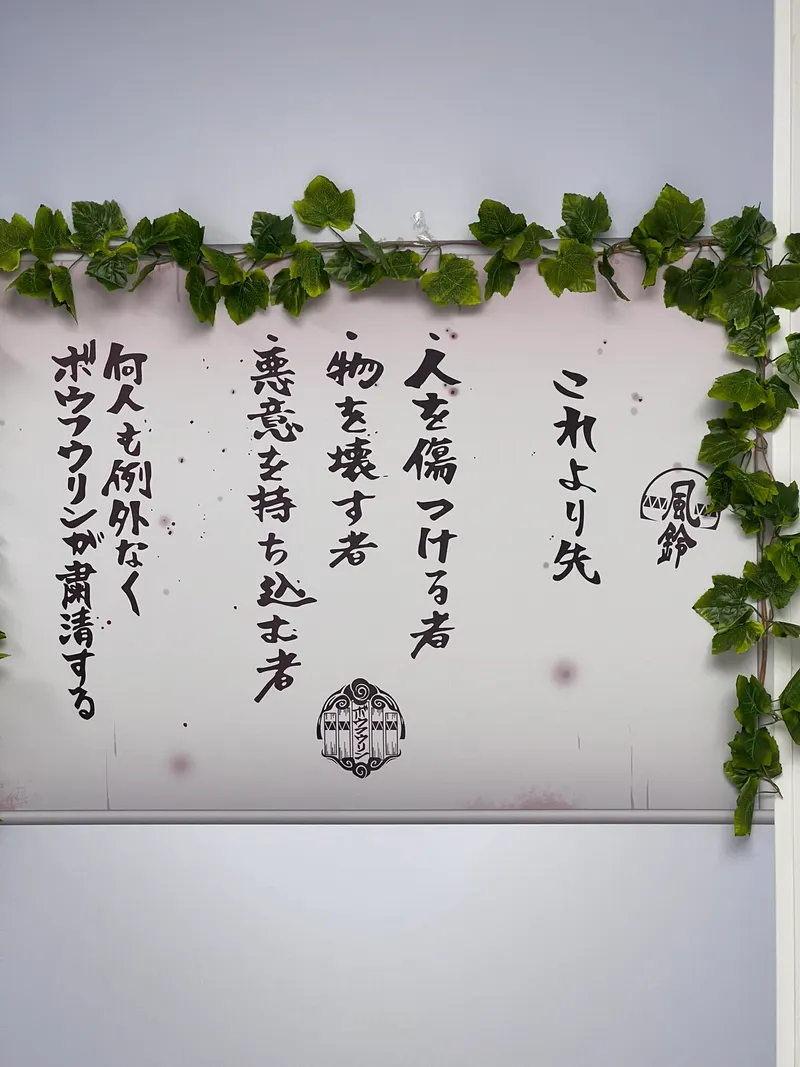 風鈴
これより先
・人を傷つける者
・物を壊す者
・悪意を持ち込む者
何人も例外なく
ボウフウリンが粛清する
ボウフウリン